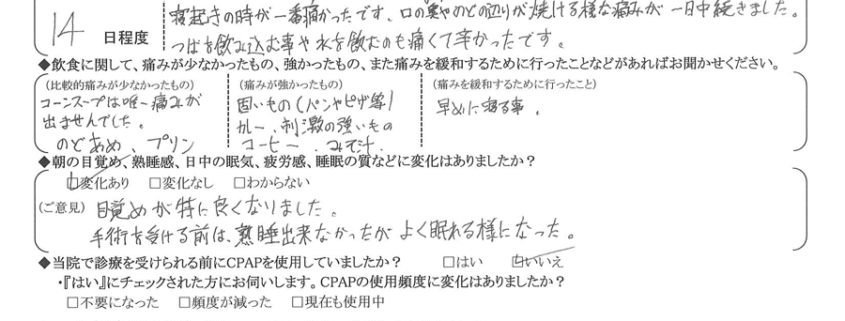 14 日程度
寝起きの時が一番痛かったです。口の奥やのどの辺りが焼ける様な痛みが一日中続きました。
つばを飲み込む事や水を飲むのも痛くて辛かったです。
◆飲食に関して、痛みが少なかったもの、強かったもの、また痛みを緩和するために行ったことなどがあればお聞かせください。
(比較的痛みが少なかったもの)
コーンスープは唯一痛みが
出ませんでした。
のどあめ、プリン
(痛みが強かったもの)
固いもの(パンやピザ等)
カレー、刺激の強いもの
コーヒー、みそ汁.
(痛みを緩和するために行ったこと)
早めに寝る事.
◆朝の目覚め、熟睡感、日中の眠気、疲労感、睡眠の質などに変化はありましたか?
☑変化あり □変化なし □わからない
(ご意見) 目覚めが特に良くなりました。
手術を受ける前は、熟睡出来なかったが よく眠れる様になった。
◆当院で診療を受けられる前にCPAPを使用していましたか? □はい ☑いいえ
・『はい』にチェックされた方にお伺いします。CPAPの使用頻度に変化はありましたか?
□不要になった □頻度が減った □現在も使用中